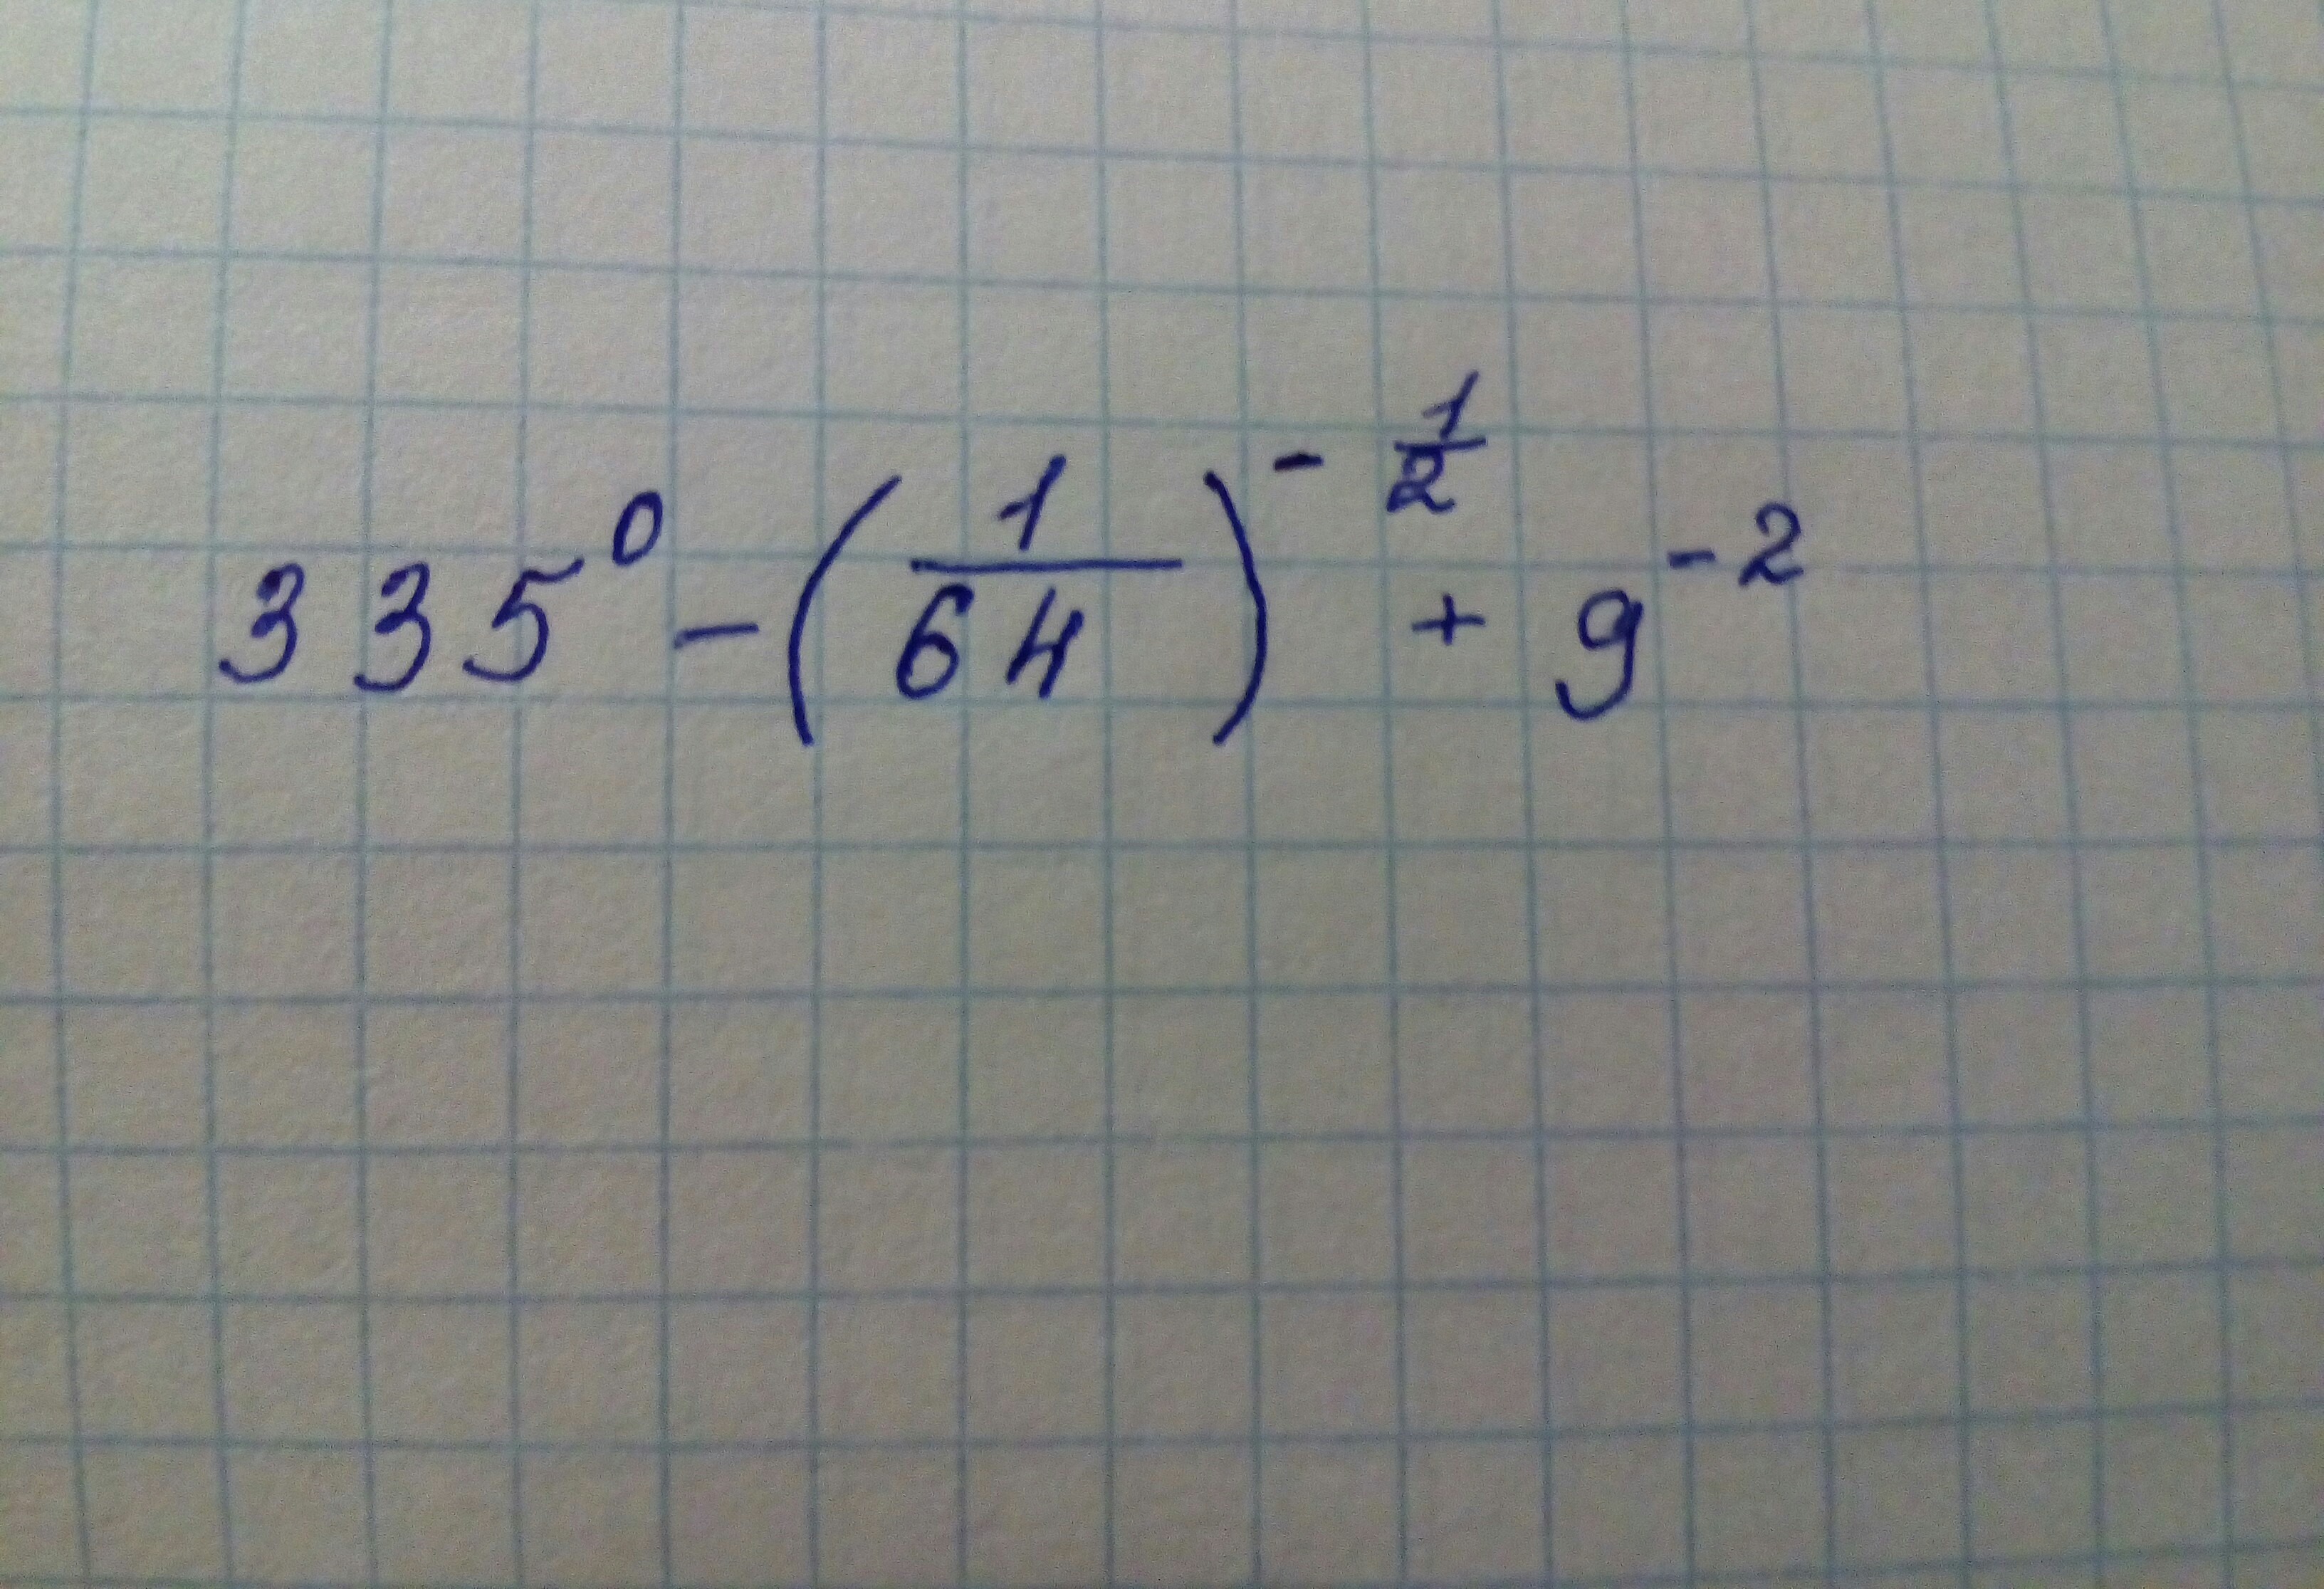 335⁰ − (1/64)^(−1/2) + 9⁻²